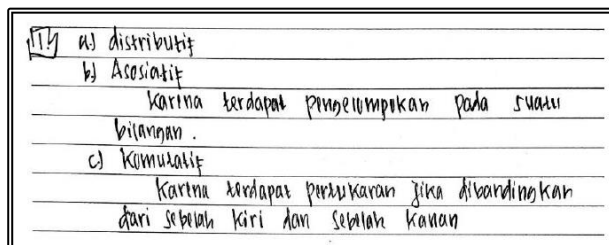 11) a) distributif
b) Asosiatif
Karena terdapat pengelompokan pada suatu
bilangan.
c) Komutatif
Karena terdapat pertukaran jika dibandingkan
dari sebelah kiri dan sebelah kanan